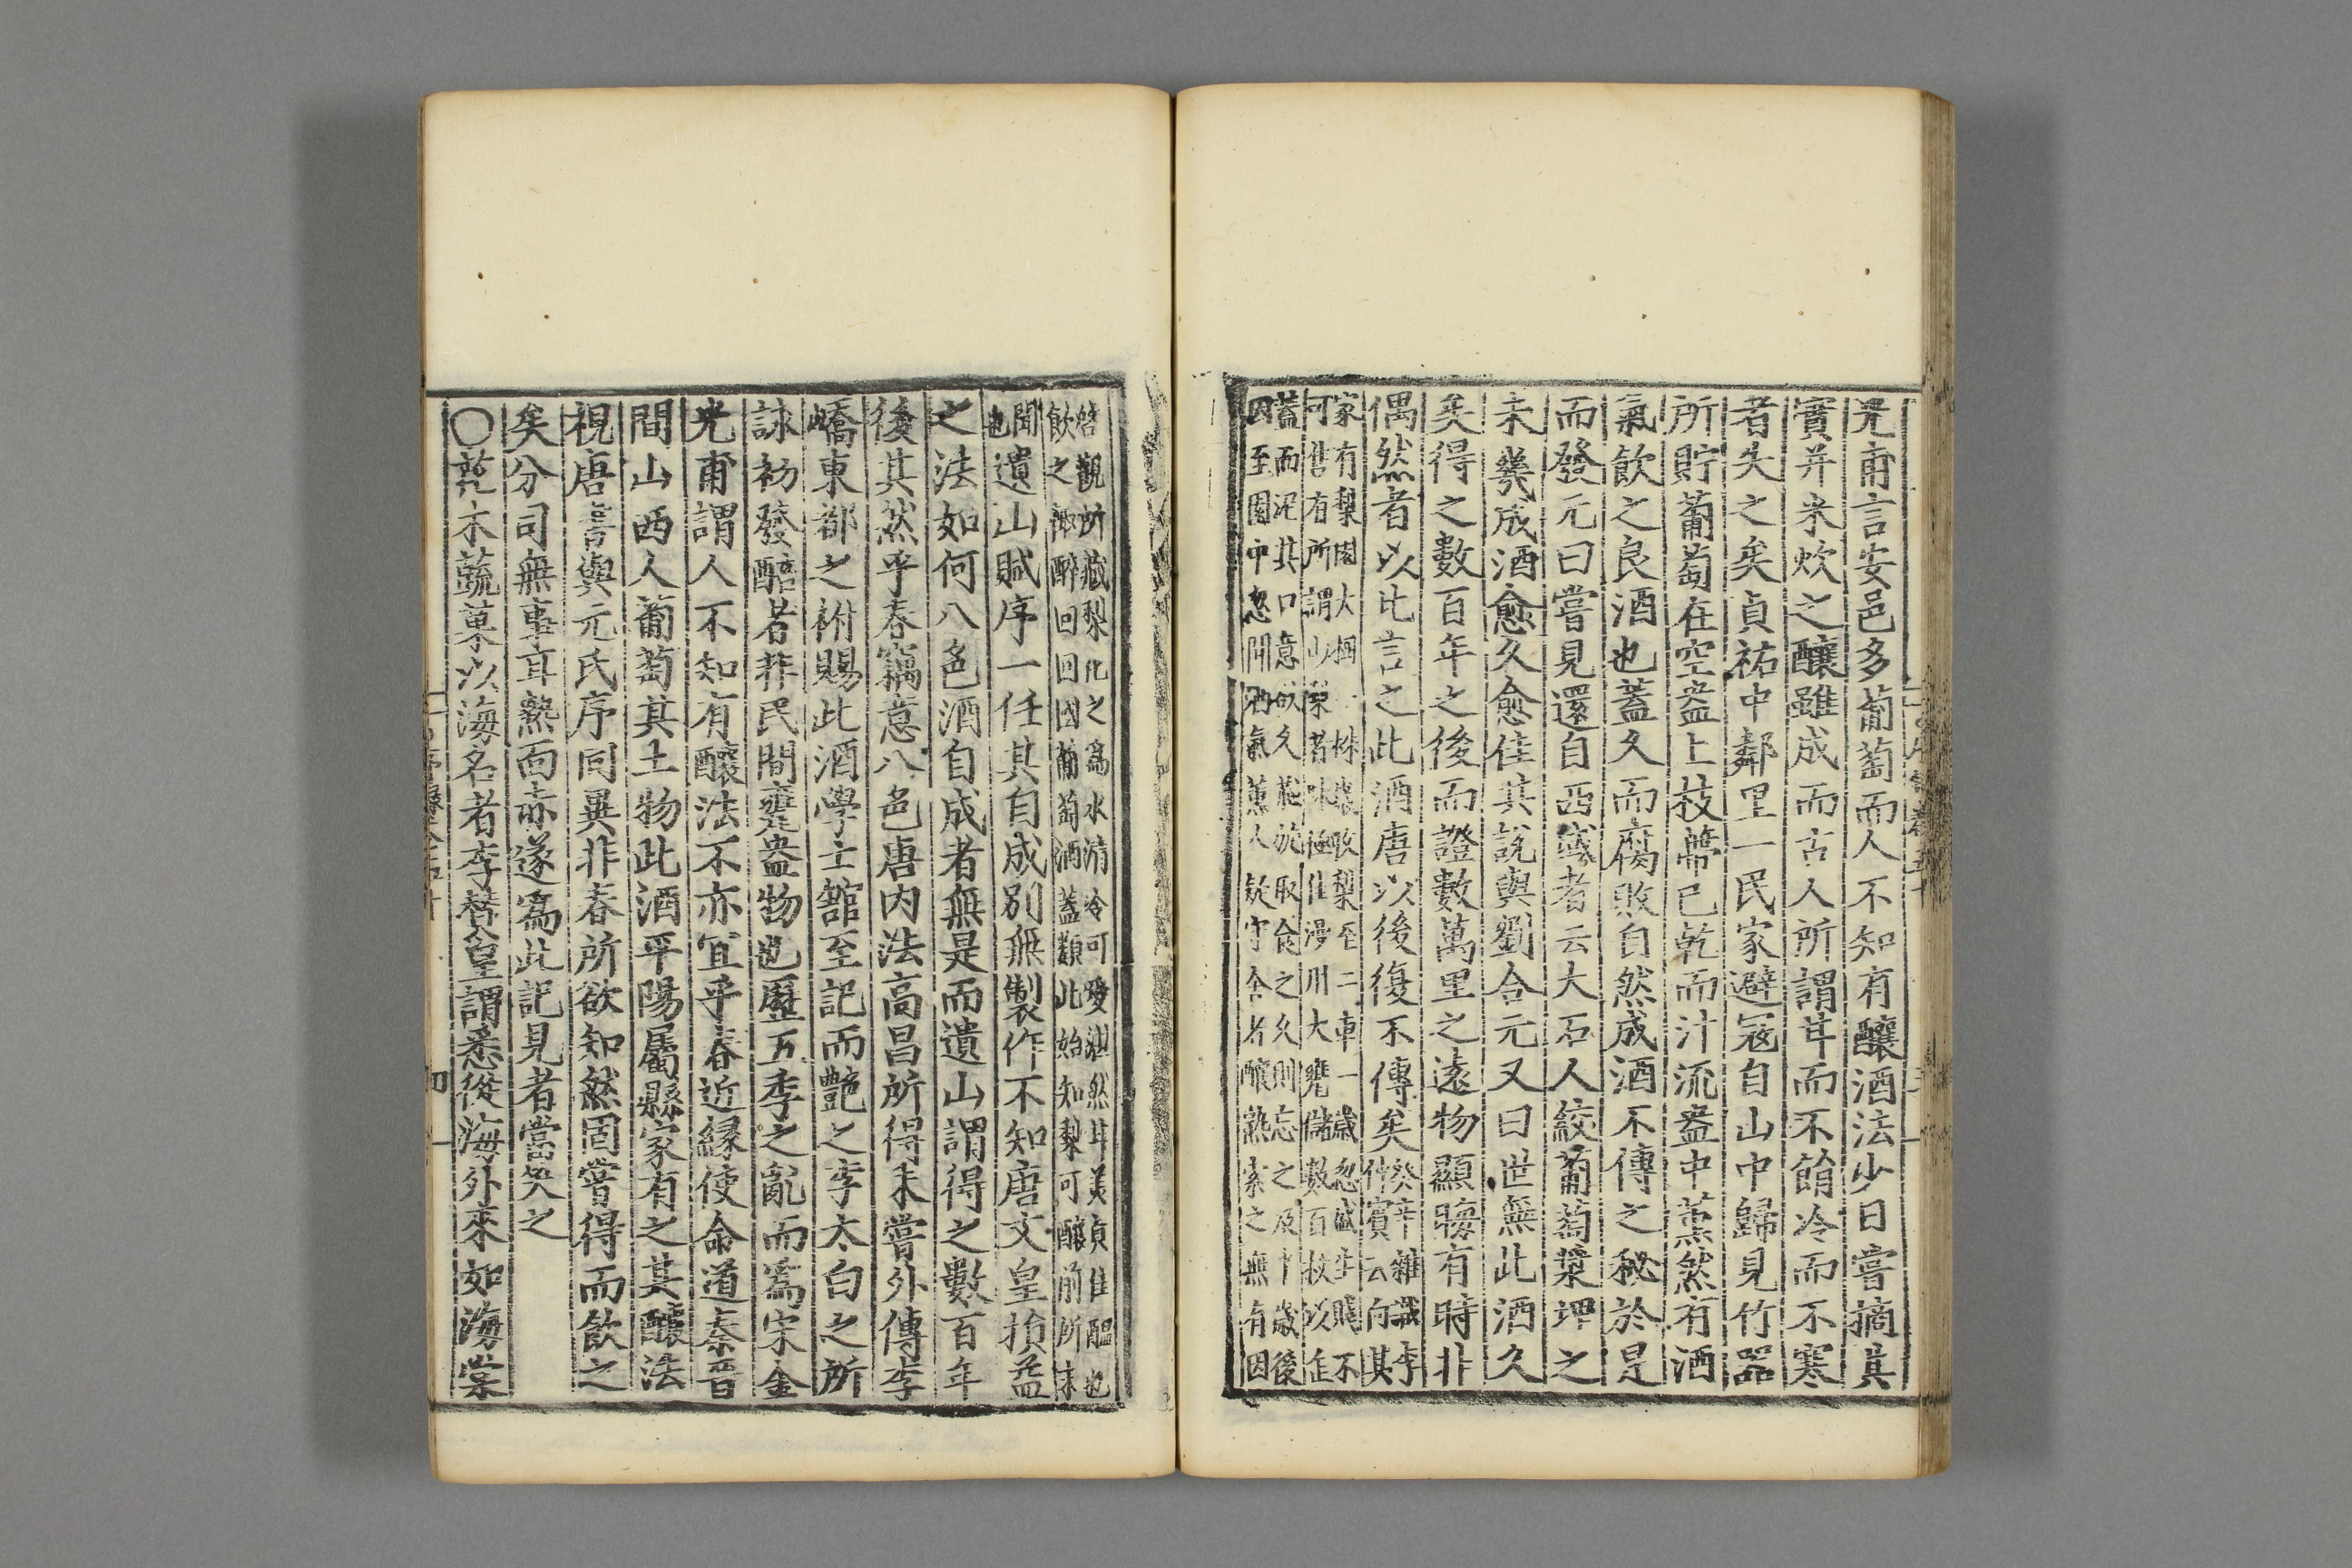 光甫言安邑多葡萄而人不知有釀酒法少日嘗摘其
實并米炊之釀雖成而古人所謂甘而不餉冷而不寒
者失之矣貞祐中鄰里一民家避寇自山中歸見竹器
所貯葡萄在空盎上枝蔕已乾而汁流盎中薰然有酒
氣飲之良酒也蓋久而腐敗自然成酒不傳之秘於是
而發元曰嘗見還自西域者云大石人絞葡萄漿埋之
未幾成酒愈久愈佳其說與劉合元又曰世無此酒久
矣得之數百年之後而證數萬里之遠物顯晦有時非
偶然者以此言之此酒唐以後復不傳矣癸辛雜識李
仲賓云向其
家有梨園大樹一株收梨至二車一歲忽盛生賤不
可售有所謂山梨者味極佳漫用大甕儲數百枚以缶
蓋而泥其口意欲久藏旋取食之久則忘之及半歲後
因至園中忽聞酒氣薰人疑守舍者釀熟索之無有因
啓觀所藏梨化之爲水清冷可愛湛然甘美真佳醞也
飲之輒醉回回國葡萄酒蓋類此始知梨可釀前所未
聞
也遺山賦序一任其自成別無製作不知唐文皇損益
之法如何八色酒自成者無是而遺山謂得之數百年
後其然乎春竊意八色唐内法高昌所得未嘗外傳李
嶠東都之祔賜此酒學士舘至記而艶之李太白之所
詠初發醅若非民間甕盎物也歷五季之亂而爲宋金
光甫謂人不知有釀法不亦宜乎春近縁使命道秦晋
間山西人葡萄其土物此酒平陽屬縣家有之其釀法
視唐書與元氏序同異非春所欲知然固嘗得而飲之
矣分司無事耳熱面赤遂爲此記見者當笑之
〇花木蔬菓以海名者李贊皇謂悉從海外來如海棠